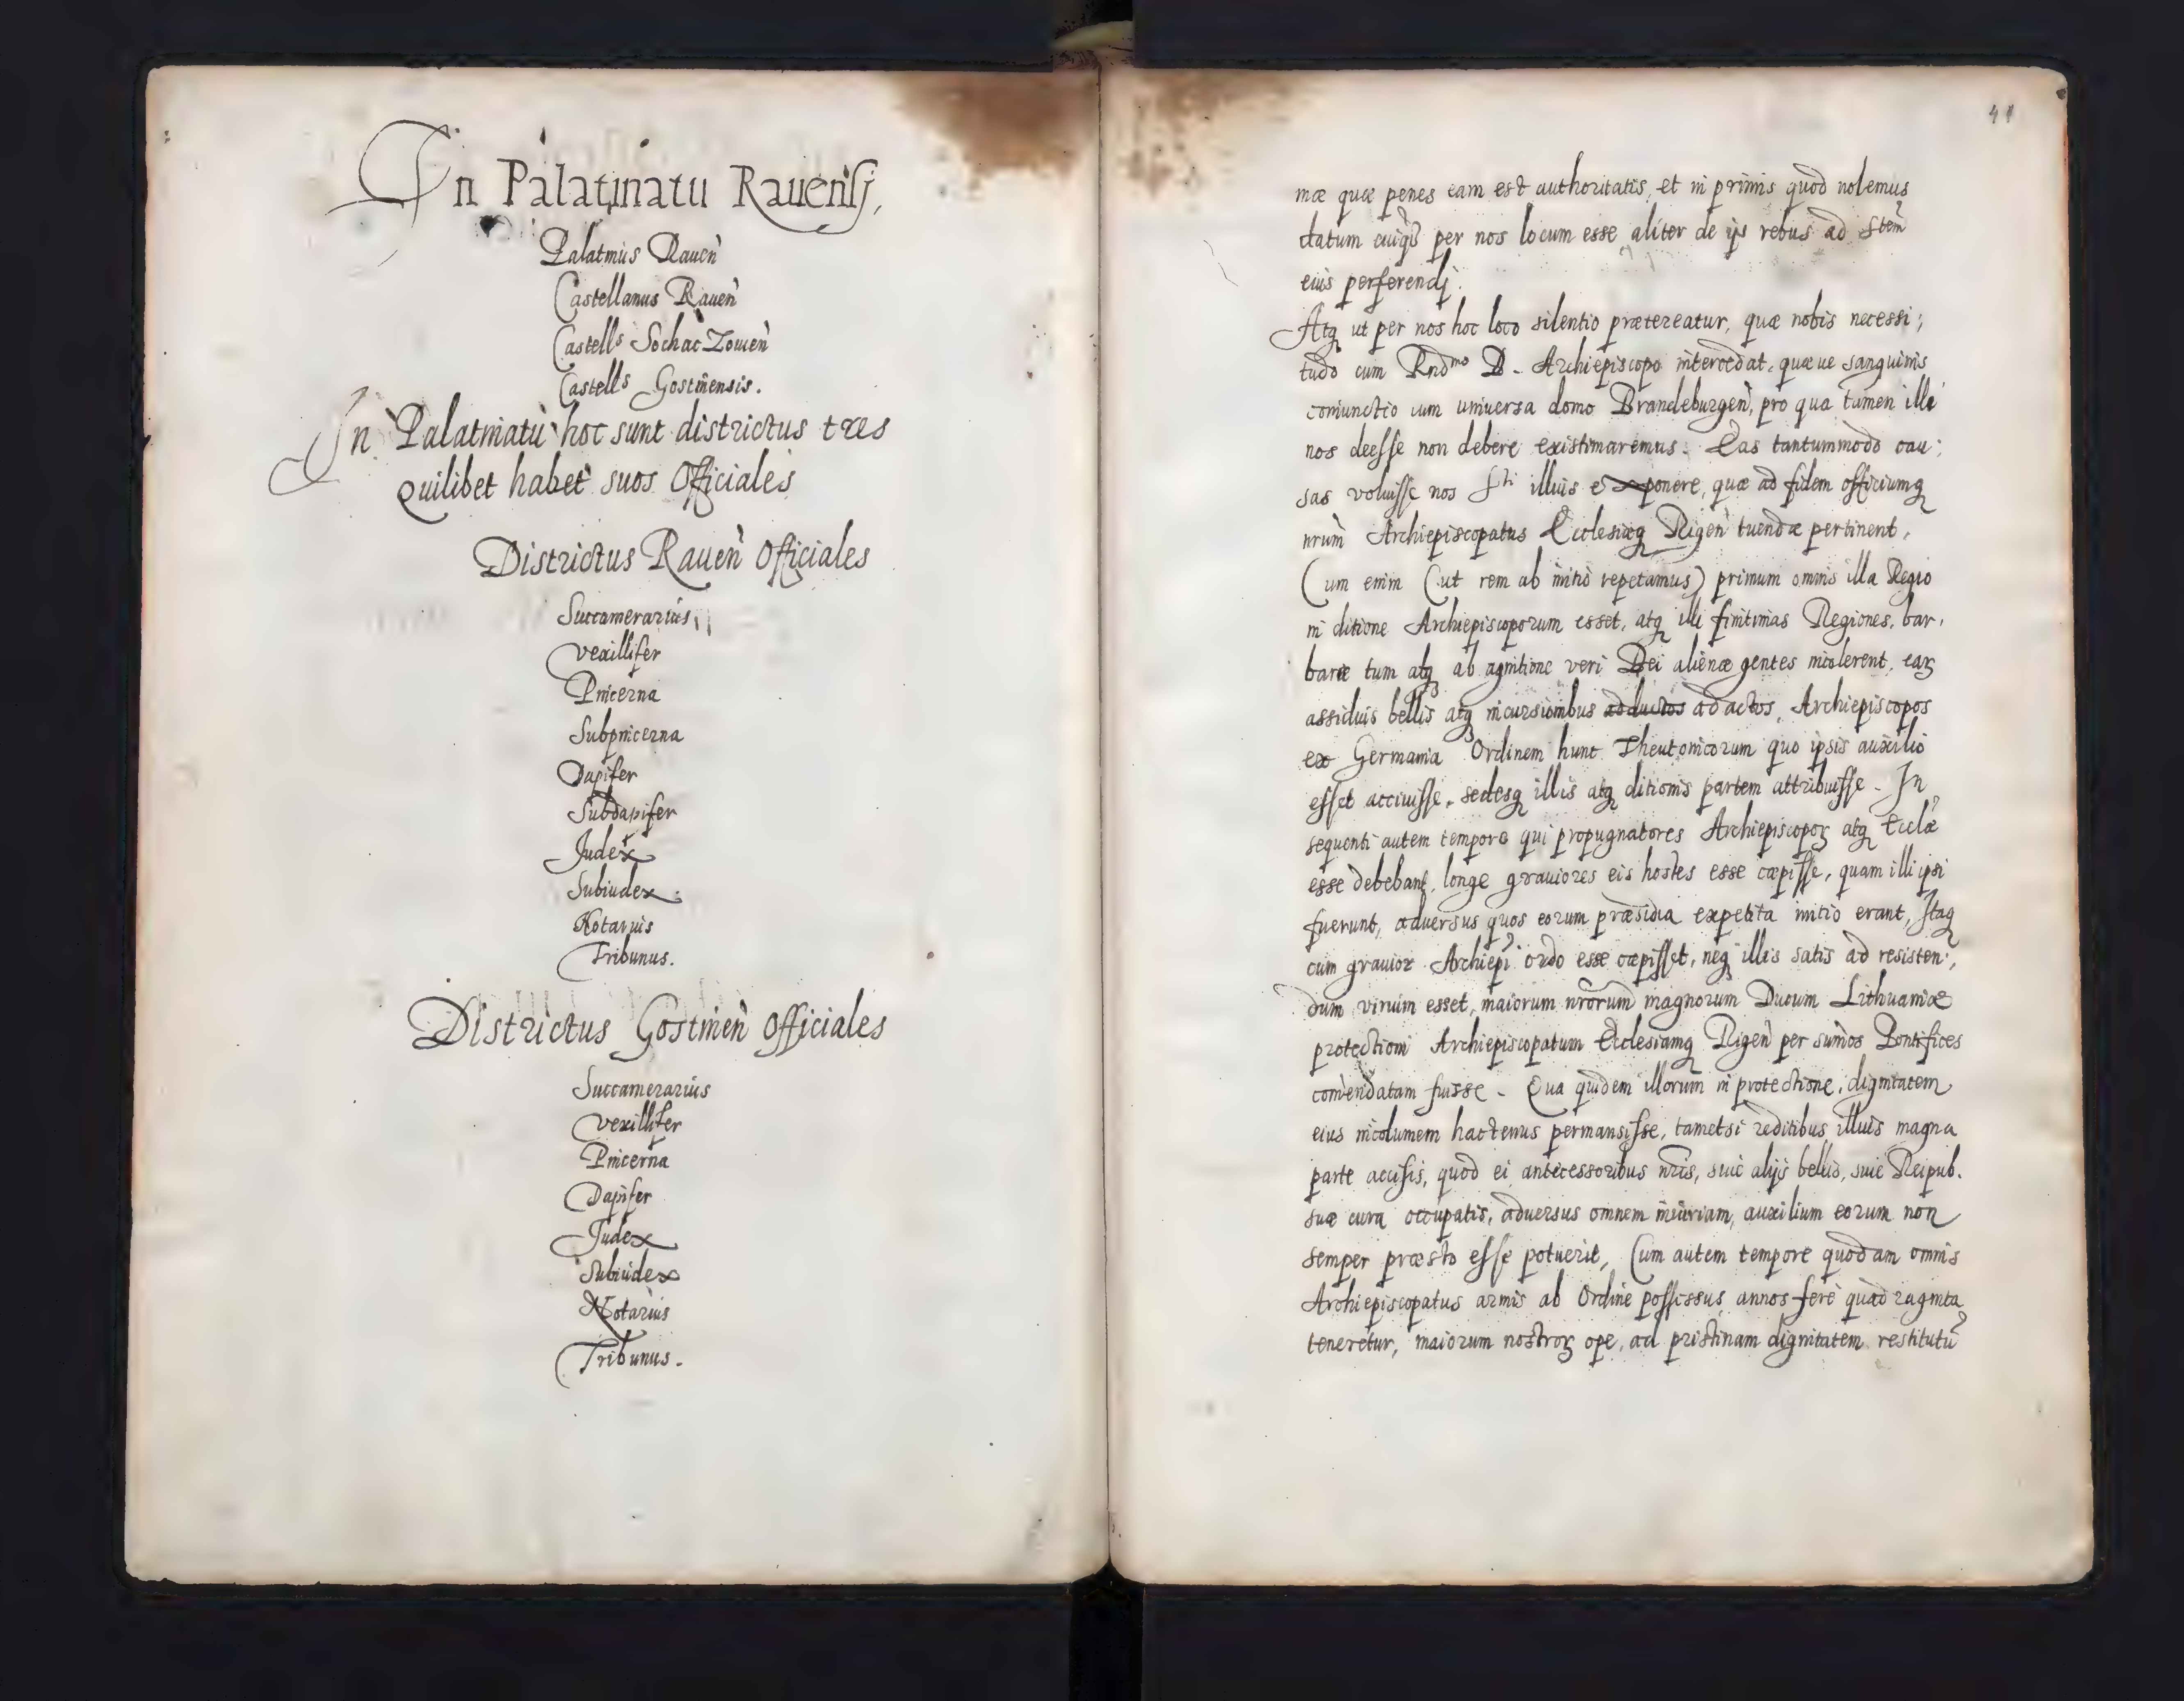 In Palatinatu Rauensi,
Palatinus Rauen̄
Castellanus Rauen̄
Castells Sochac Zouien̄
Castells Gostinensis.
In Palatinatu hoc sunt districtus tres
Quilibet habet suos Officiales
Districtus Rauen̄ Officiales
Succamerarius
Vexillifer
Pincerna
Subpincerna
Dapifer
Subdapifer
Judex
Subiudex
Notarius
Tribunus.
Districtus Gostinen̄ Officiales
Succamerarius
Vexillifer
Pincerna
Dapifer
Judex
Subiudex
Notarius
Tribunus.
41
mæ quæ penes eam est authoritatis, et in primis quod nolemus
datum cuiq̄ per nos locum esse aliter de ijs rebus ad Stem
eius perferendj.
Atq ut per nos hoc loco silentio prætereatur, quæ nobis necessi;
tudo cum Rndmo D. Archiepiscopo intercedat, quæue sanguinis
coniunctio cum uniuersa domo Brandeburgen̄, pro qua tamen illi
nos deesse non debere existimaremus. Eas tantummodo cau:
sas voluisse nos Sti illius exponere, quæ ad fidem officiumq
nrum̄ Archiepiscopatus Ecclesiæq Rigen̄ tuendæ pertinent,
Cum enim (ut rem ab initio repetamus) primum omnis illa Regio
in ditione Archiepiscoporum esset, atq illi finitimas Regiones, bar,
baræ tum atq ab agnitione veri Dei alienæ gentes incolerent, eaꝝ
assiduis bellis atq incursionibus adductos adactos, Archiepiscopos
ex Germania Ordinem hunc Theutonicorum quo ipsis auxilio
esset acciuisse, sedesq illis atq ditionis partem attribuisse. In
sequenti autem tempore qui propugnatores Archiepiscopoꝝ atq Ecclǣ
esse debebant, longe grauiores eis hostes esse cœpisse, quam illi ipsi
fuerunt, aduersus quos eorum præsidia expetita initio erant, Itaq
cum grauior Archiepī ordo esse cœpisset, neq illis satis ad resisten;
dum virium esset, maiorum nrorum̄ magnorum Ducum Lithuaniæ
protectioni Archiepiscopatum Ecclesiamq Rigen̄ per sum̄os Pontifices
com̄endatam fuisse. Qua quidem illorum in protectione, dignitatem
eius incolumem hactenus permansisse, tametsi reditibus illius magna
parte accisis, quod ei antecessoribus nris̄, siue alijs bellis, siue Reipub.
suæ cura occupatis, aduersus omnem iniuriam, auxilium eorum non
semper præsto esse potuerit, Cum autem tempore quodam omnis
Archiepiscopatus armis ab Ordine possessus annos fere quadraginta
teneretur, maiorum nostroꝝ ope, ad pristinam dignitatem restitutū